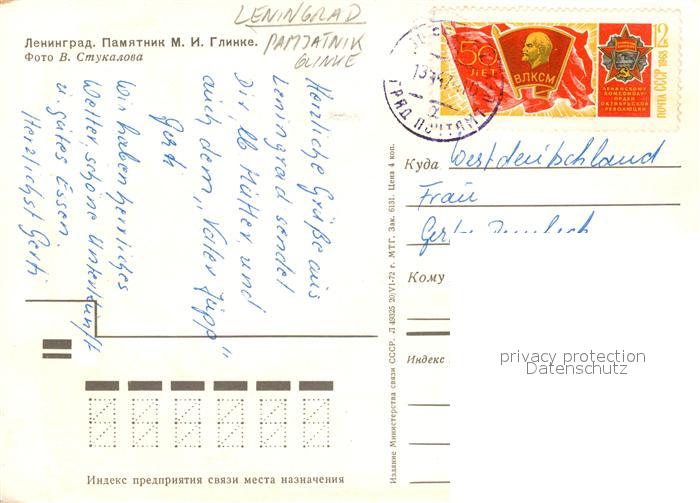 LENINGRAD
PAMJATNIK
GLINKE
Ленинград. Памятник М. И. Глинке.
Фото В. Стукалова
Herzliche Grüße aus
Leningrad sendet
Dir, lb Mutter und
auch dem „Vater Jupp"
Gerti
Wir haben herrliches
Wetter, schöne Unterkunft
u. gutes Essen.
Herzlichst Gerti
50
ЛЕТ
ВЛКСМ
12
ЛЕНИНСКОМУ
КОМСОМОЛУ
ОРДЕН
ОКТЯБРЬСКОЙ
РЕВОЛЮЦИИ
ПОЧТА СССР 1968
ПОЧТАМТ
Куда
Westdeutschland
Frau
Кому
Индекс
privacy protection
Datenschutz
Издание Министерства связи СССР. Л 49325 20/VI-72 г. МТГ. Зак. 6131. Цена 4 коп.
Индекс предприятия связи места назначения